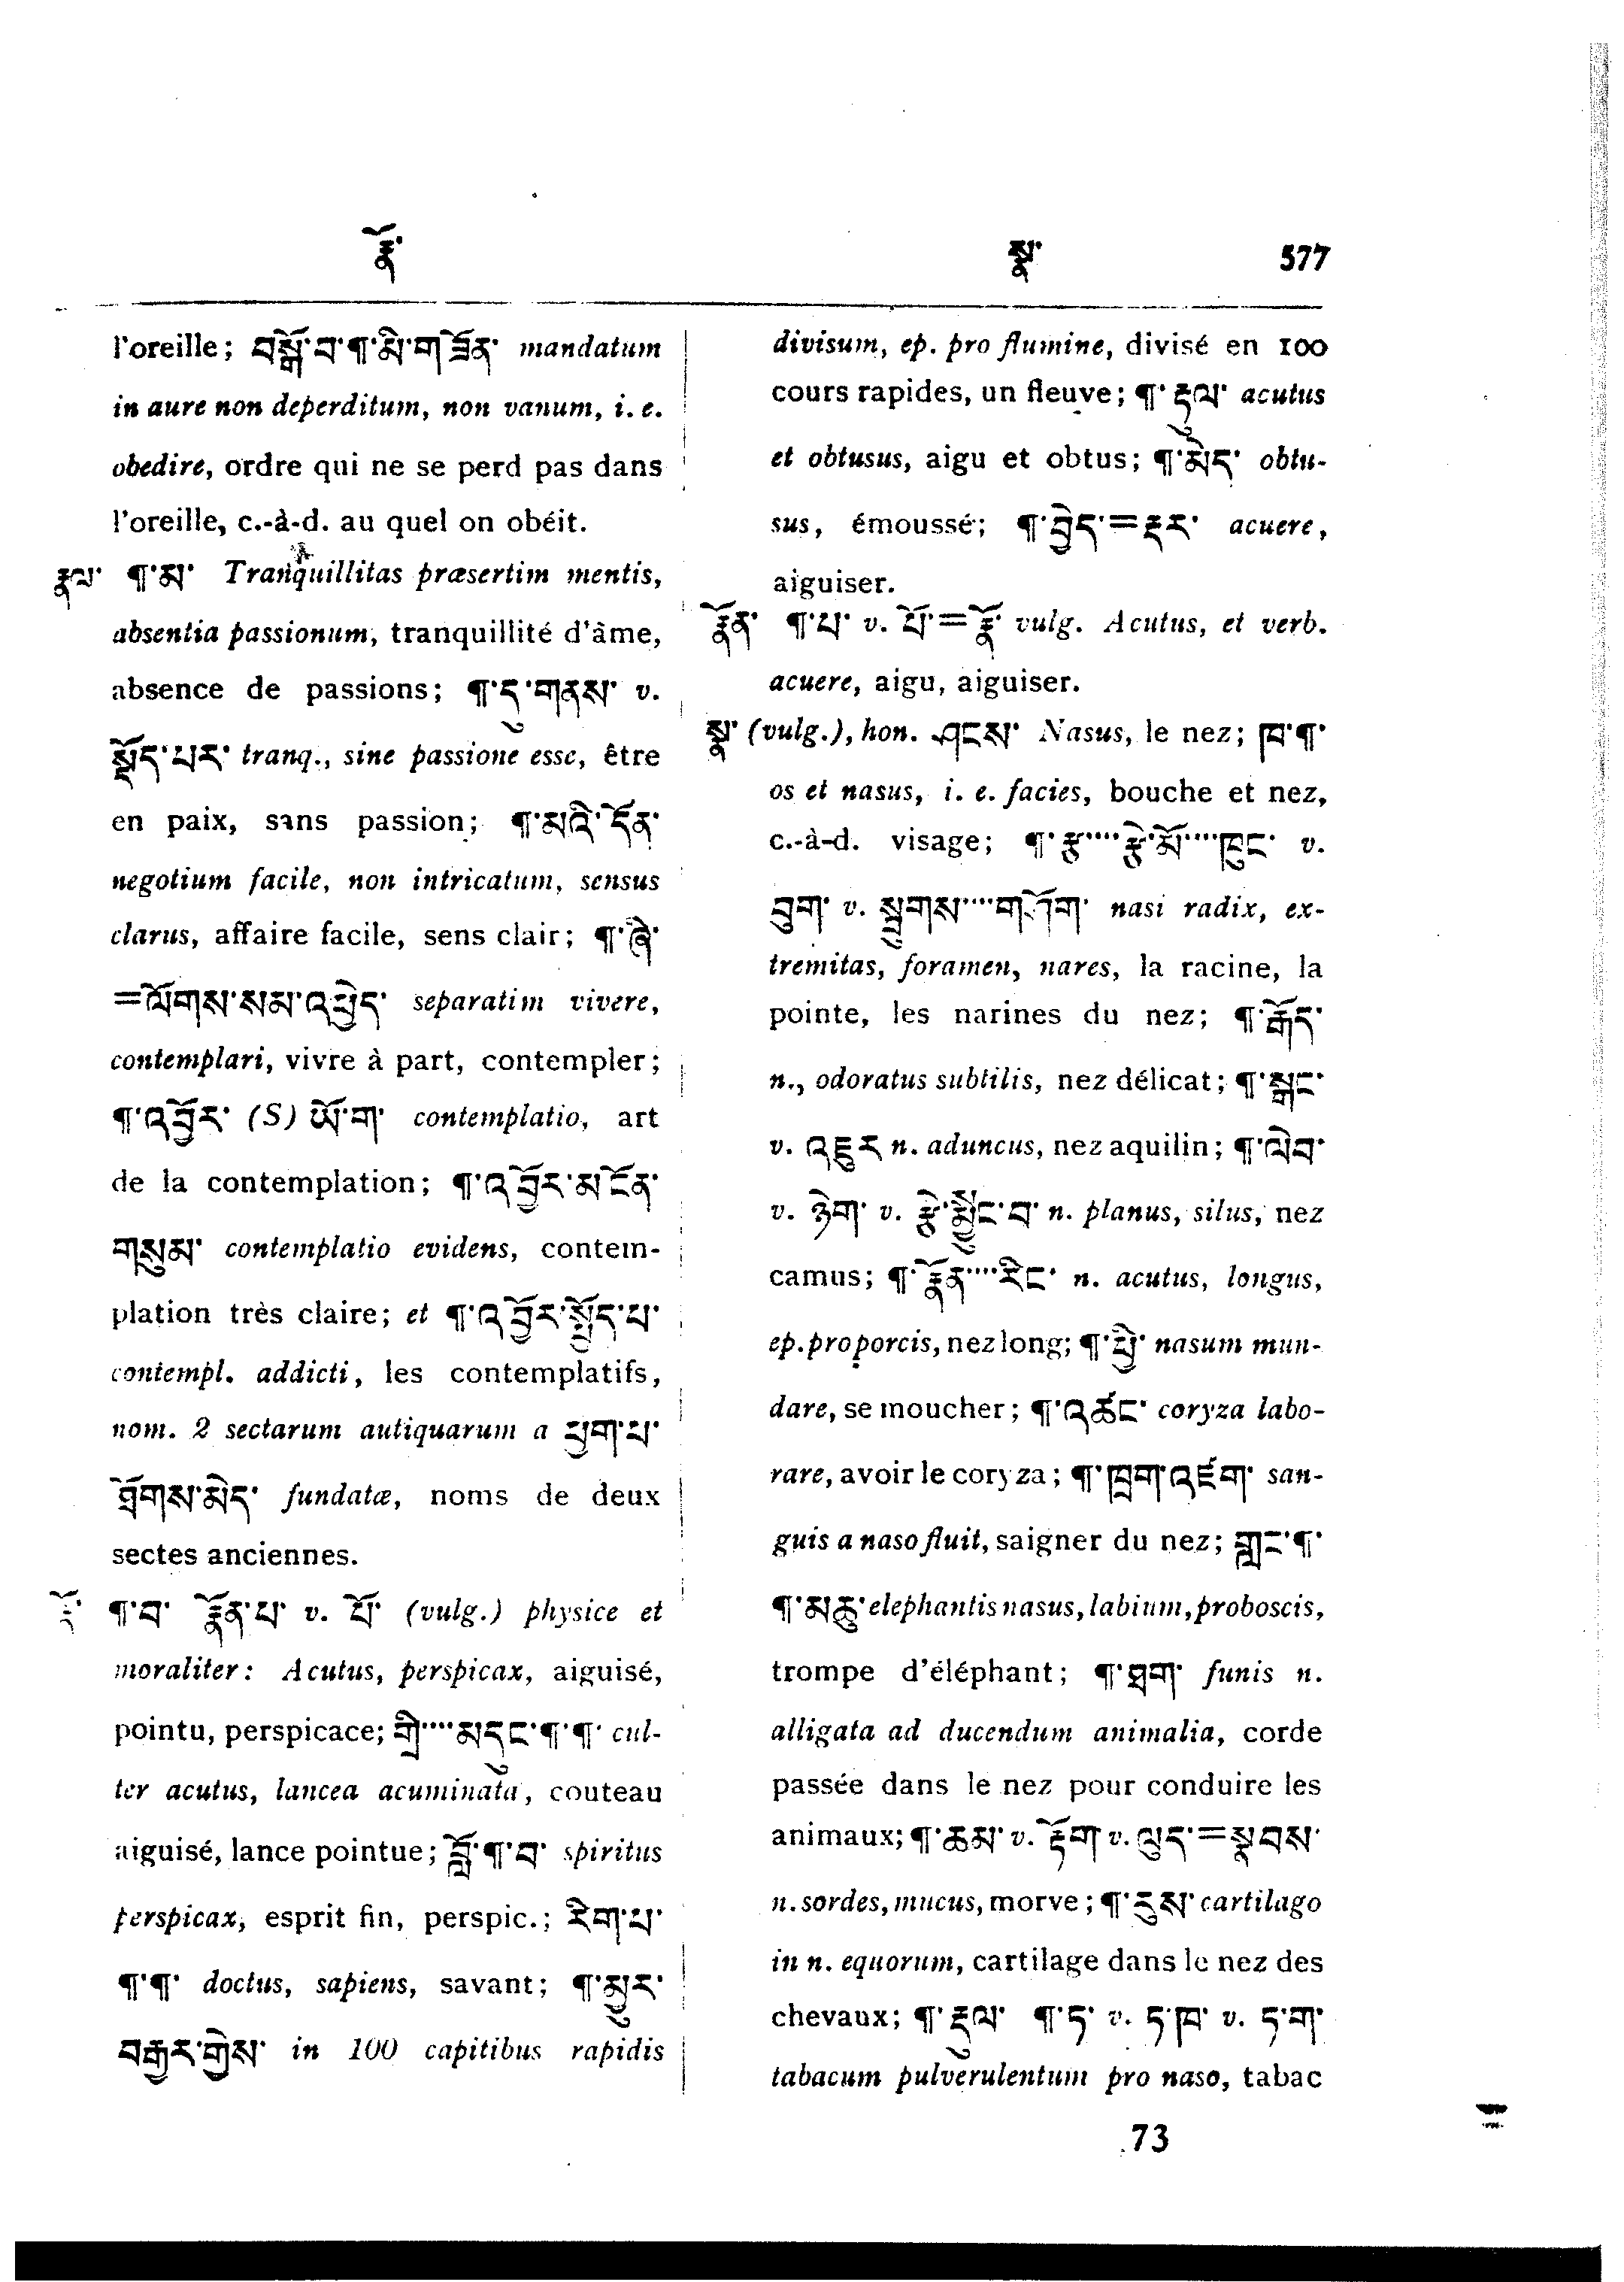 རྣོ་
སྣ་ 577
l'oreille; བསྒོ་བ་¶་མི་གཟོན་ mandatum
in aure non deperditum, non vanum, i. e.
obedire, ordre qui ne se perd pas dans
l'oreille, c.-à-d. au quel on obéit.
རྣལ་ ¶་མ་ Tranquillitas præsertim mentis,
absentia passionum, tranquillité d'âme,
absence de passions; ¶་དུ་གནས་ v.
སྡོད་པར་ tranq., sine passione esse, être
en paix, sans passion; ¶་མའི་དོན་
negotium facile, non intricatum, sensus
clarus, affaire facile, sens clair; ¶་ཞི་
=ལོགས་སམ་འཕྱེད་ separatim vivere,
contemplari, vivre à part, contempler;
¶་འབྱོར་ (S) ཡོ་ག་ contemplatio, art
de la contemplation; ¶་འབྱོར་མངོན་
གསུམ་ contemplatio evidens, contem-
plation très claire; et ¶་འབྱོར་སྤྱོད་པ་
contempl. addicti, les contemplatifs,
nom. 2 sectarum antiquarum a ཕྱག་པ་
ཐོགས་མེད་ fundatæ, noms de deux
sectes anciennes.
རྣོ་ ¶་བ་ རྣོན་པ་ v. པོ་ (vulg.) physice et
moraliter: Acutus, perspicax, aiguisé,
pointu, perspicace; གྲི····མདུང་¶་¶་ cul-
ter acutus, lancea acuminata, couteau
aiguisé, lance pointue; བློ་¶་བ་ spiritus
perspicax, esprit fin, perspic.; རིག་པ་
¶་¶་ doctus, sapiens, savant; ¶་མྱུར་
བརྒྱར་གྱེས་ in 100 capitibus rapidis
divisum, ep. pro flumine, divisé en 100
cours rapides, un fleuve; ¶་རྡུལ་ acutus
et obtusus, aigu et obtus; ¶་མེད་ obtu-
sus, émoussé; ¶་བྱེད་=རྡར་ acuere,
aiguiser.
རྣོན་ ¶་པ་ v. པོ་=རྣོ་ vulg. Acutus, et verb.
acuere, aigu, aiguiser.
སྣ་ (vulg.), hon. ཤངས་ Nasus, le nez; ཁ་¶་
os et nasus, i. e. facies, bouche et nez,
c.-à-d. visage; ¶་རྩ····རྩེ་མོ····ཁུང་ v.
བུག་ v. སྦུགས····གཤོག་ nasi radix, ex-
tremitas, foramen, nares, la racine, la
pointe, les narines du nez; ¶་རྒོད་
n., odoratus subtilis, nez délicat; ¶་སྒང་
v. འཇུར n. aduncus, nez aquilin; ¶་ལེབ་
v. ཉེག་ v. རྩེ་མྱོང་བ་ n. planus, silus, nez
camus; ¶་རྣོན····རིང་ n. acutus, longus,
ep. pro porcis, nez long; ¶་ཕྱི་ nasum mun-
dare, se moucher; ¶་འཚང་ coryza labo-
rare, avoir le coryza; ¶་ཁྲག་འཛག་ san-
guis a naso fluit, saigner du nez; གླང་¶་
¶་མཆུ་ elephantis nasus, labium, proboscis,
trompe d'éléphant; ¶་ཐག་ funis n.
alligata ad ducendum animalia, corde
passée dans le nez pour conduire les
animaux; ¶་ཆམ་ v. རྡོག v. ལུད་=སྣབས་
n. sordes, mucus, morve; ¶་རུས་ cartilago
in n. equorum, cartilage dans le nez des
chevaux; ¶་རྡུལ་ ¶་ཏ་ v. ཏ་ཁ་ v. ཏ་ག་
tabacum pulverulentum pro naso, tabac
73